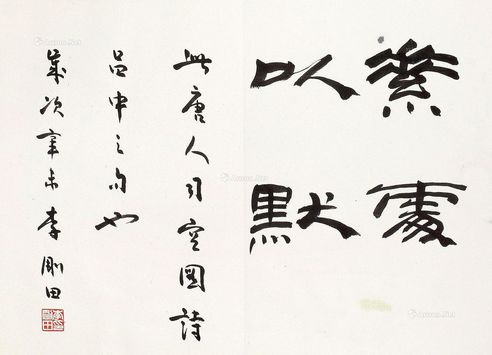 素處
以默
此唐人司空圖詩
品中之句也
歲次辛未李剛田